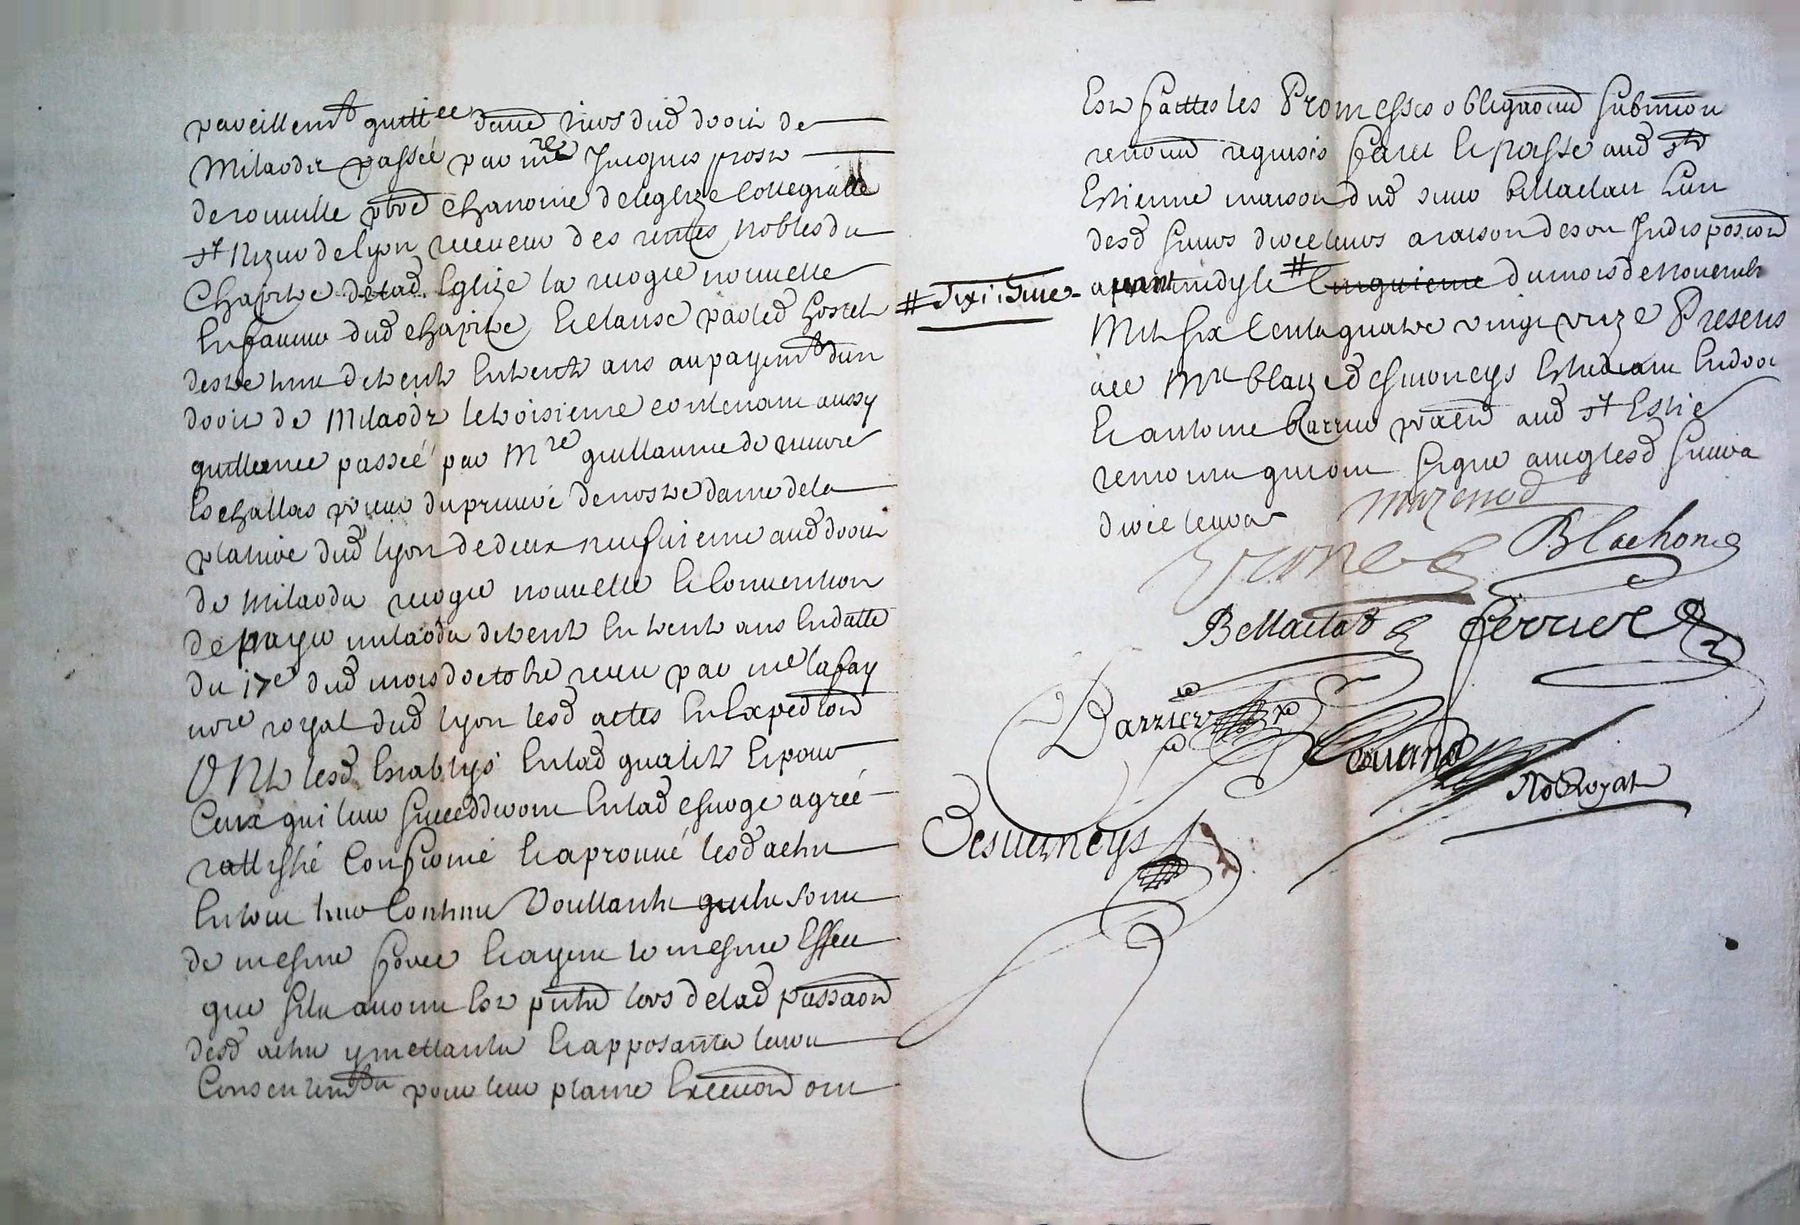 pareillemt quittee dun tiers dud droit de
Milaods passée par mre Jacques prost
de rouuille pbre chanoine deleglize Collegialle
st Nizier de lyon receueur des rentes Nobles du
Chapitre delad. Eglize la recogne nouuelle
En faueur dud chapitre Et clause par led hostel
destre tenu de trent En trent ans au payemt dun
droit de Milaods le troisieme contenant aussy
quittance passéé par Mre guillaume de neuure
Eschallas prieur du prieuré de nostre dame de la
platiere dud lyon de deux neufuieme aud droit
de milaods recogne nouuelle Et Conuention
de payer milaods de trent En trent ans En datte
du 17e dud mois doctobre receu par me lafay
nore royal dud lyon lesd actes En Expedition
Ont lesd Establys En lad qualité Et pour
Ceux qui leur succedderont En lad charge agréé
rattiffié Confirmé Et aprouué lesd actes
En tout leur Contenu Voullants quils soint
de mesme force Et ayent le mesme Effect
que sils auoint Esté pntz lors de lad passaon
desd actes y mettants Et apposants leurs
Consentemts pour leur plaine Execuon ont
Este faittes les Promesses obligaons submion
renons requises fait Et passé aud st
Estienne maison dud sieur Bellaclat lun
desd sieurs directeurs a raison de son Indisposion
auant midy le # cinquieme du mois de Nouembre
# Sixiesme
Mil six Cents quatre vingt unze Presens
Mre blaize desuerneys Estudiant En droit
Et antoine barrier praen aud st Estie
temoins qui ont signe auec lesd sieurs
directeurs
mazenod
Blachon
Bellaclat
ferrier
Barrier
Desuerneys
No Royal